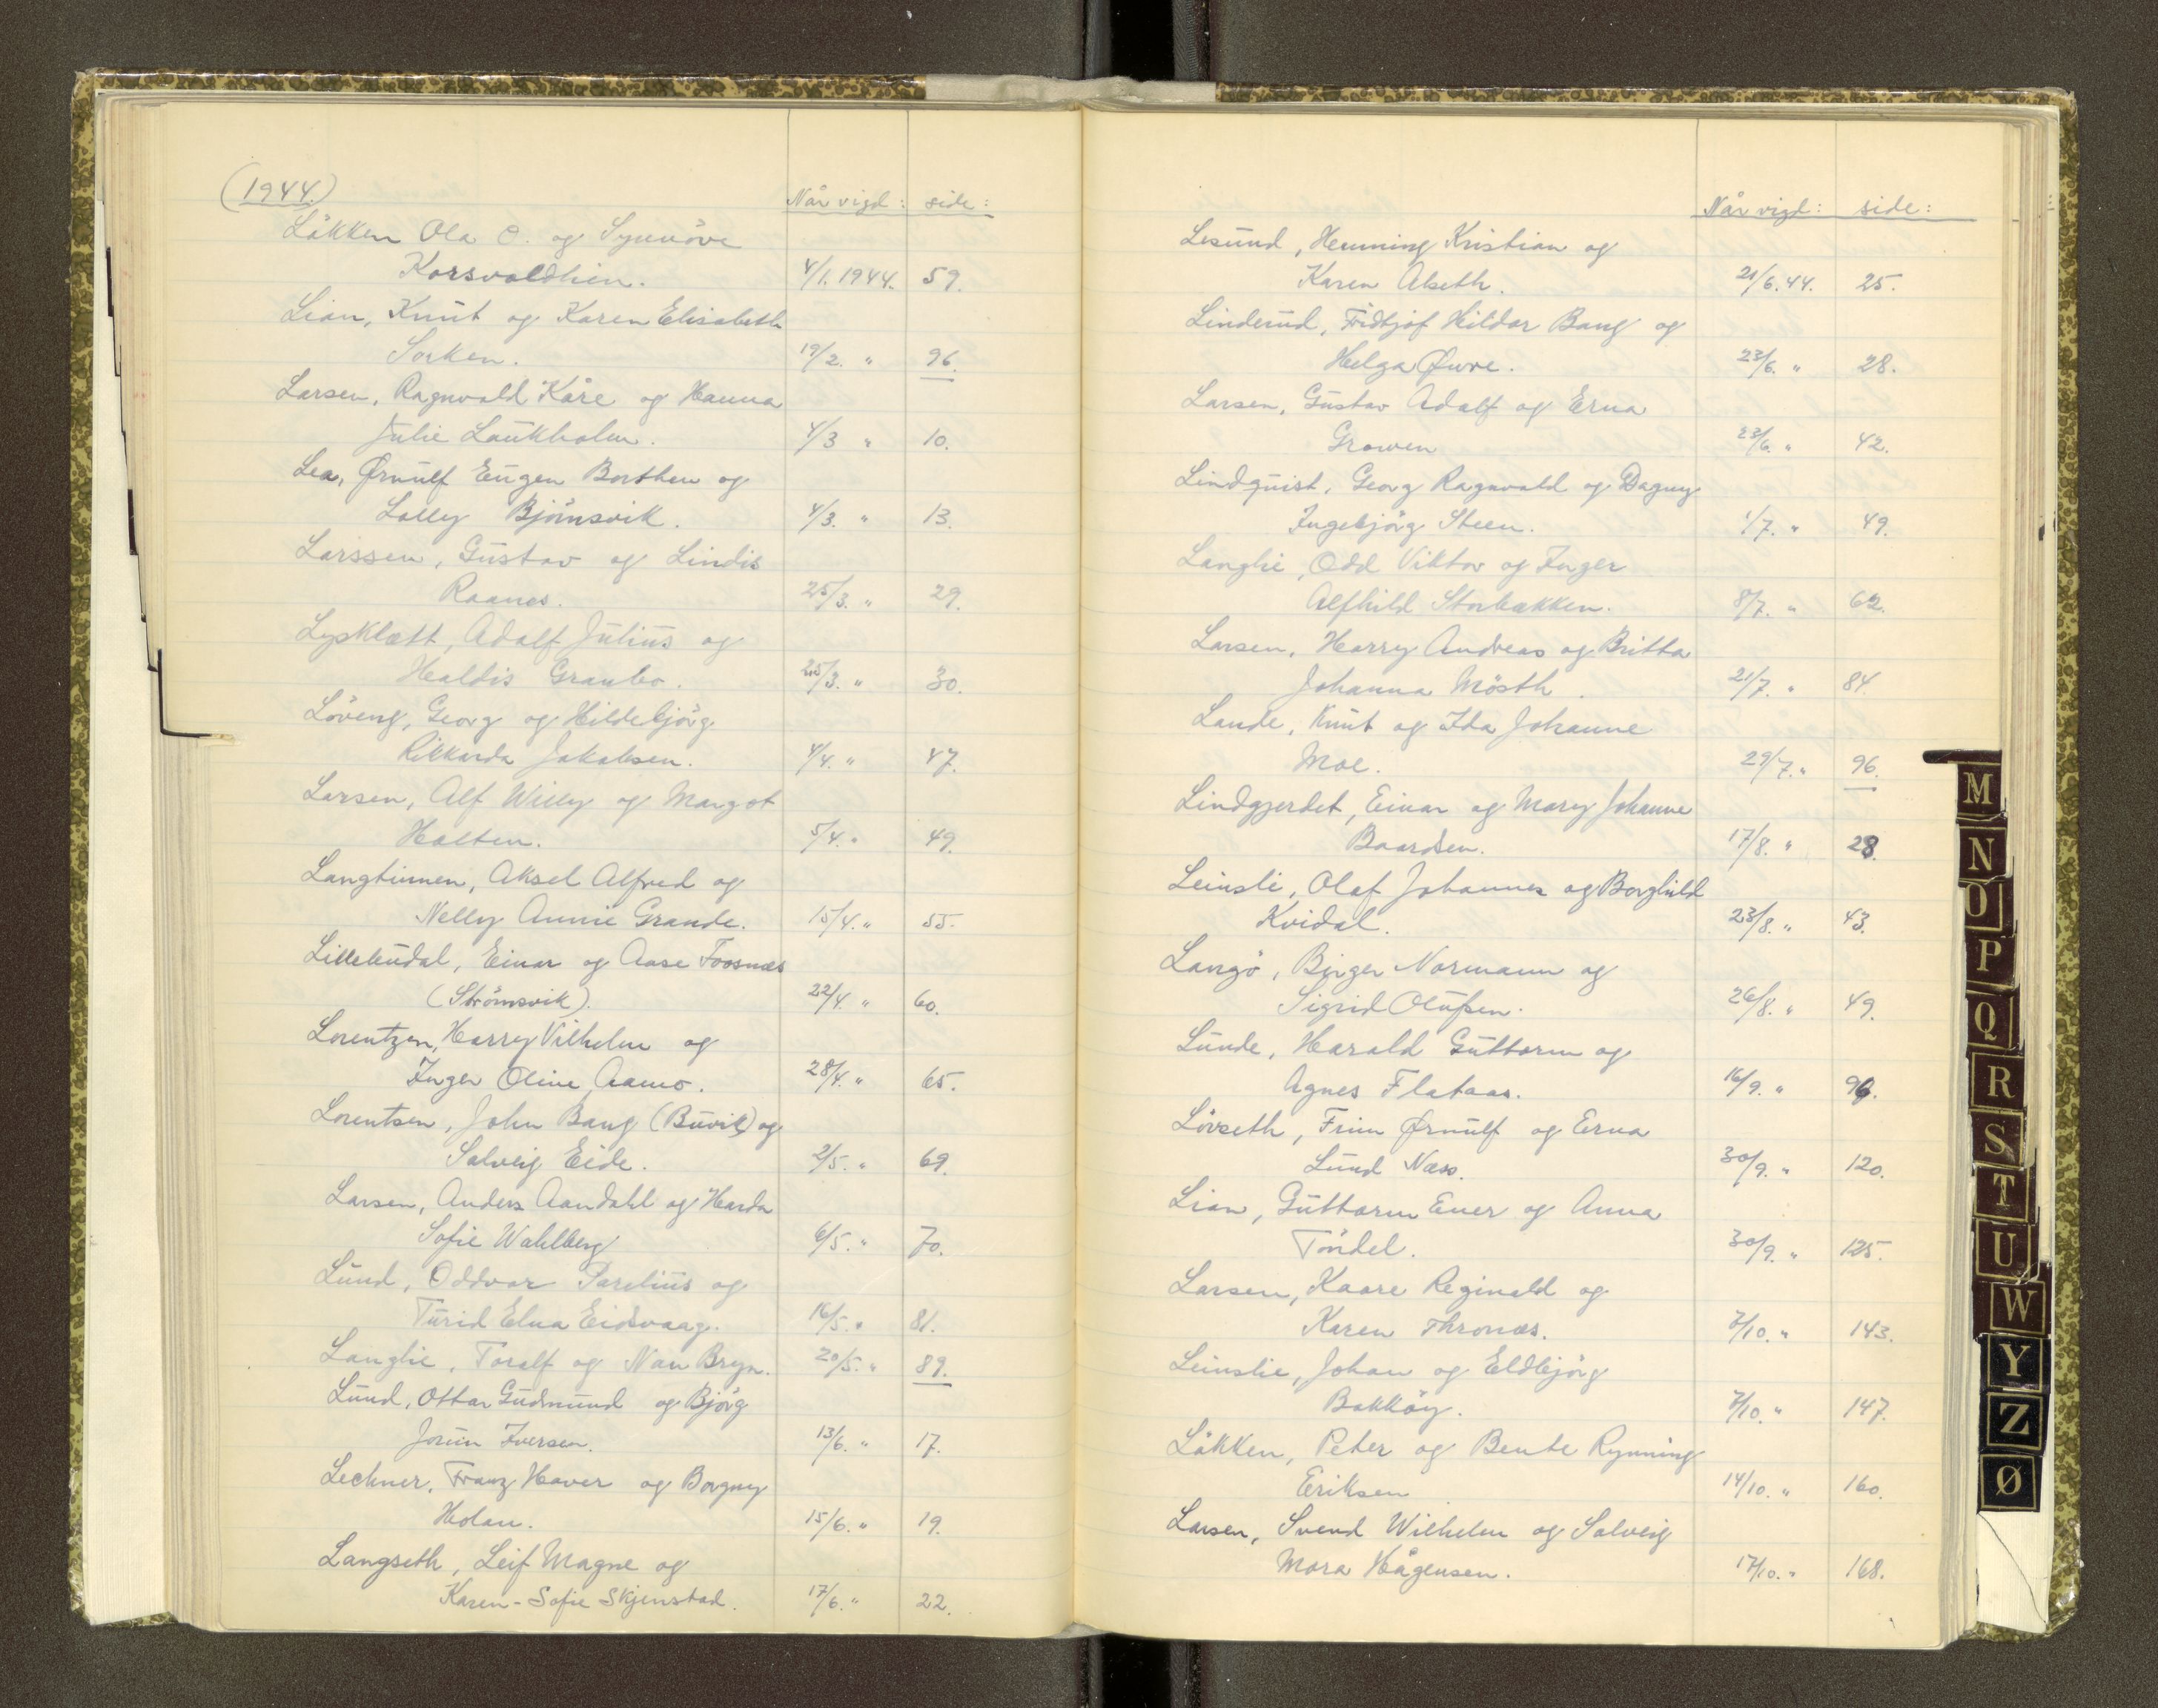 (1944.)
Når vigd: side:
Løkken Ola O. og Synnöve
Korsvoldhin. 4/1. 1944. 59.
Lian, Knut og Karen Elisabeth
Sorken. 19/2. " 96.
Larsen, Ragnvald Kåre og Hanna
Julie Laukholm. 4/3 " 10.
Lea, Ørnulf Eugen Borthen og
Lolly Björnsvik. 4/3. " 13.
Larssen, Gustav og Lindis
Raanes. 25/3. " 29.
Lysklætt, Adolf Julius og
Haldis Granbo. 25/3. " 30.
Löveng, Georg og Hildebjörg
Rikkarda Jakobsen. 4/4. " 47.
Larsen, Alf Willy og Margot
Holten. 5/4. " 49.
Langtinnen, Aksel Alfred og
Nelly Annie Grande. 15/4. " 55.
Lillebudal, Einar og Aase Foosnæs
(Strömsvik). 22/4. " 60.
Lorentzen, Harry Vilhelm og
Inger Oline Aamo. 28/4. " 65.
Lorentsen, John Bang (Buvik) og
Solveig Eide. 2/5. " 69.
Larsen, Anders Aandahl og Harda
Sofie Wahlberg 6/5. " 70.
Lund, Oddvar Parelius og
Turid Elna Eidsvaag. 16/5. " 81.
Langlie, Toralf og Nan Bryn. 20/5. " 89.
Lund, Ottar Gudmund og Björg
Jorun Iversen. 13/6. " 17.
Lechner, Franz Haver og Borgny
Holan. 15/6. " 19.
Langseth, Leif Magne og
Karen-Sofie Skjenstad. 17/6. " 22.
Når vigd: side:
Lesund, Henning Kristian og
Karen Alseth. 21/6. 44. 25.
Linderud, Fridtjof Hildor Bang og
Helga Øwre. 23/6. " 28.
Larsen, Gustav Adolf og Erna
Growen 23/6. " 42.
Lindquist, Georg Ragnvald og Dagny
Ingebjörg Steen. 1/7. " 49.
Langlie, Odd Viktor og Inger
Alfhild Storbækken. 8/7. " 62.
Larsen, Harry Andreas og Britta
Johanna Mösth. 21/7. " 84.
Lande, Knut og Ida Johanne
Moe. 29/7. " 96.
Lindgjerdet, Einar og Mary Johanne
Baardsen. 17/8. " 28.
Leinsli, Olaf Johannes og Borghild
Kvidal. 23/8. " 43.
Langö, Birger Normann og
Sigrid Olufsen. 26/8. " 49.
Lunde, Harald Guttorm og
Agnes Flataas. 16/9. " 96.
Lövseth, Finn Ørnulf og Erna
Lund Næss. 30/9. " 120.
Lian, Guttorm Ener og Anna
Töndel. 30/9. " 125.
Larsen, Kaare Reginald og
Karen Thronæs. 7/10. " 143.
Leinslie, Johan og Eldbjörg
Bakköy. 7/10. " 147.
Løkken, Peter og Bente Rynning
Eriksen 14/10. " 160.
Larsen, Svend Wilhelm og Solveig
Mora Hågensen. 17/10. " 168.
M
N
O
P
Q
R
S
T
U
W
Y
Z
Ø